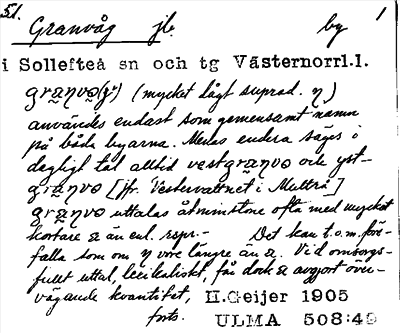 51.
Granvåg jb. by 1
i Sollefteå sn och tg Västernorrl.l.
graŋvo(g) (mycket lågt suprad. ŋ)
användes endast som gemensamt namn
på båda byarna. Medan endera säges i
dagligt tal alltid vestgraŋvo och yst-
graŋvo [jfr. Västervattnet i Multrå]
graŋvo uttalas åtminstone ofta med mycket
kortare a än enl. rspr.- Det kan t.o.m. före-
falla som om ŋ vore längre än a. Vid omsorgs-
fullt uttal, lexikaliskt, får dock a avgjort över-
vägande kvantitet,
forts.
H.Geijer 1905
ULMA 508:49